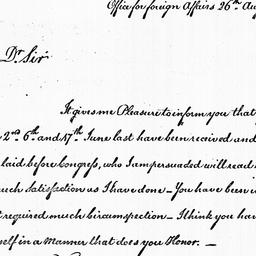 Office for foreign Affairs 26th Au
Dr. Sir
It gives me Pleasure to inform you that
2nd. 6th. and 17th. June last have been received and
laid before Congress, who I am persuaded will read
much Satisfaction as I have done — You have been
required much Circumspection — I think you have
self in a Manner that does you Honor. —